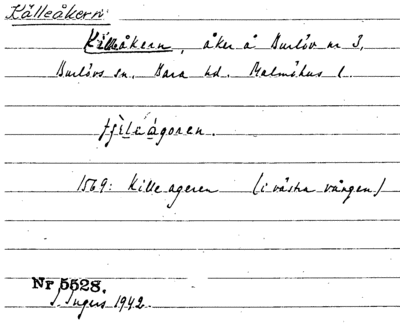 Källeåkern
Källeåkern, åker å Burlöv nr 3,
Burlövs sn, Bara hd. Malmöhus l.
1569: Kille ageren (i västra vången)
Nr 5528.
I. Ingers 1942.